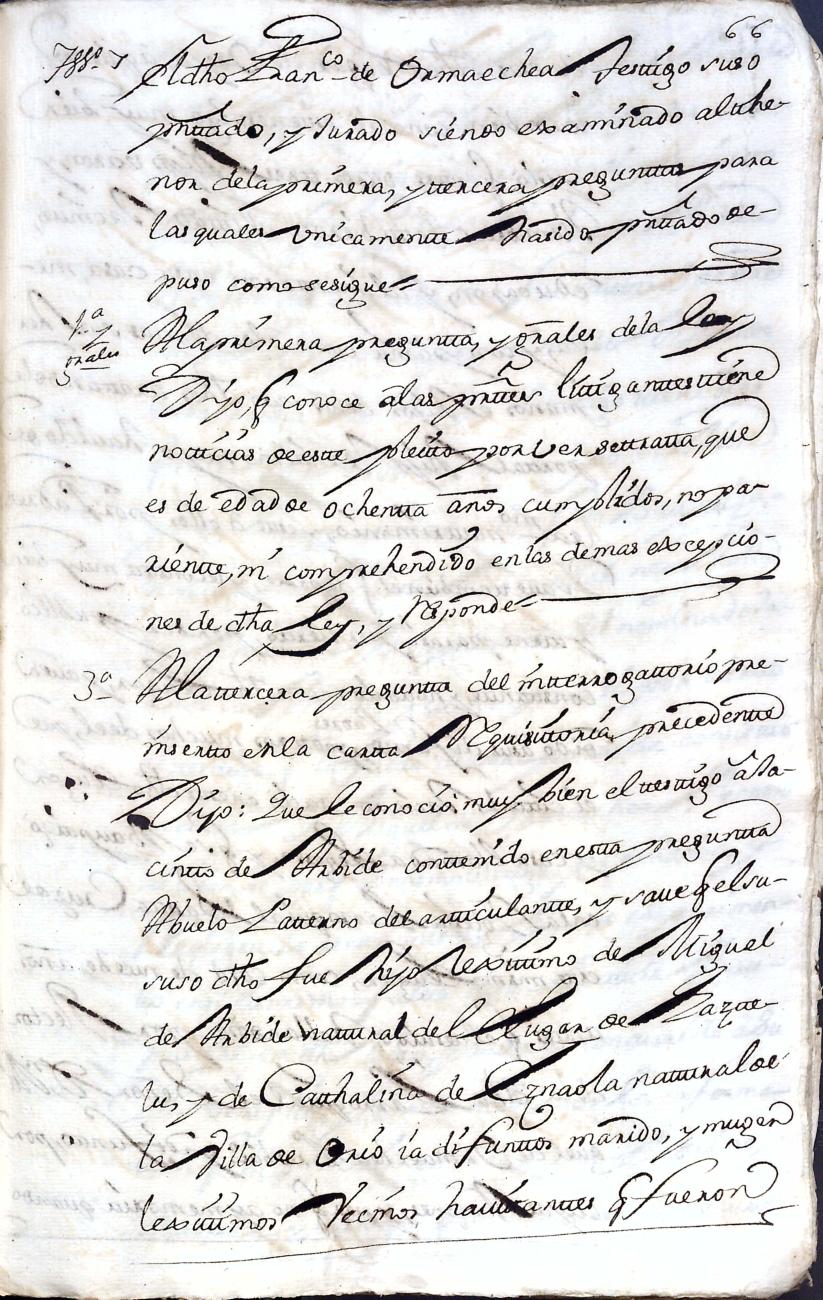 66
Tgo. 7 El dho Franco. de Ormaechea testigo suso
pnttado, y Jurado siendo examinado al the-
nor dela primera, y ttercera pregunttas para
las quales unicamentte ha sido pnttado de-
puso como se sigue=
1a. y grales A la primera preguntta, y grales de la ley
Dijo, q conoce a las prttes littigantes ttiene
notticias de este pleitto por ver se tratta, que
es de edad de ochentta años cumplidos, no pa-
rientte, ni comprehendido en las demas excepcio-
nes de dha Ley, y Responde=
3a. A la ttercera pregunta del intterrogattorio pre-
insertto en la cartta Requisittoria precedentte
Dijo: Que le conocio muy bien el testigo a Ja-
cintto de Arbide conttenido en esta preguntta
Abuelo Patterno del articulantte, y save q el su-
suso dho fue hijo lexittimo de Miguel
de Arbide natural del Lugar de
lus, y de Catthalina de Eznaola natural de
la Villa de Orio ia difunttos marido, y muger
lexittimos Vecinos havitanttes q fueron